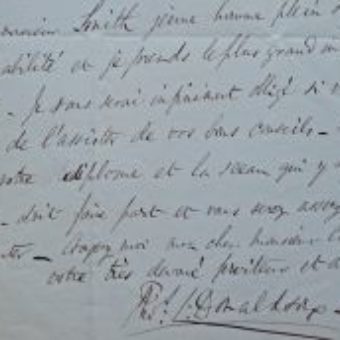 Monsieur Smith jeune homme plein d
abilité ou je prends le plus grand in
- Je vous serai infiniment obligé si v
de l'assister de vos bons conseils -
votre diplome et la sceau qui y
doit faire part et vous serez assez
- Croyez moi mon cher monsieur
votre très devoué et
Donaldson